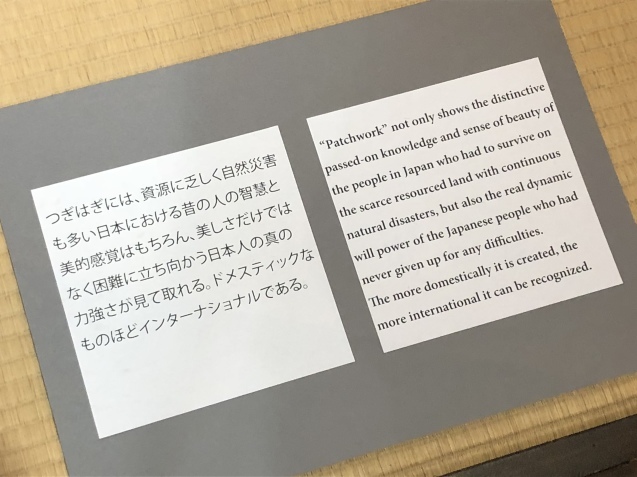 つぎはぎには、資源に乏しく自然災害
も多い日本における昔の人の智慧と
美的感覚はもちろん、美しさだけでは
なく困難に立ち向かう日本人の真の
力強さが見て取れる。ドメスティックな
ものほどインターナショナルである。
“Patchwork” not only shows the distinctive
passed-on knowledge and sense of beauty of
the people in Japan who had to survive on
the scarce resourced land with continuous
natural disasters, but also the real dynamic
will power of the Japanese people who had
never given up for any difficulties.
The more domestically it is created, the
more international it can be recognized.